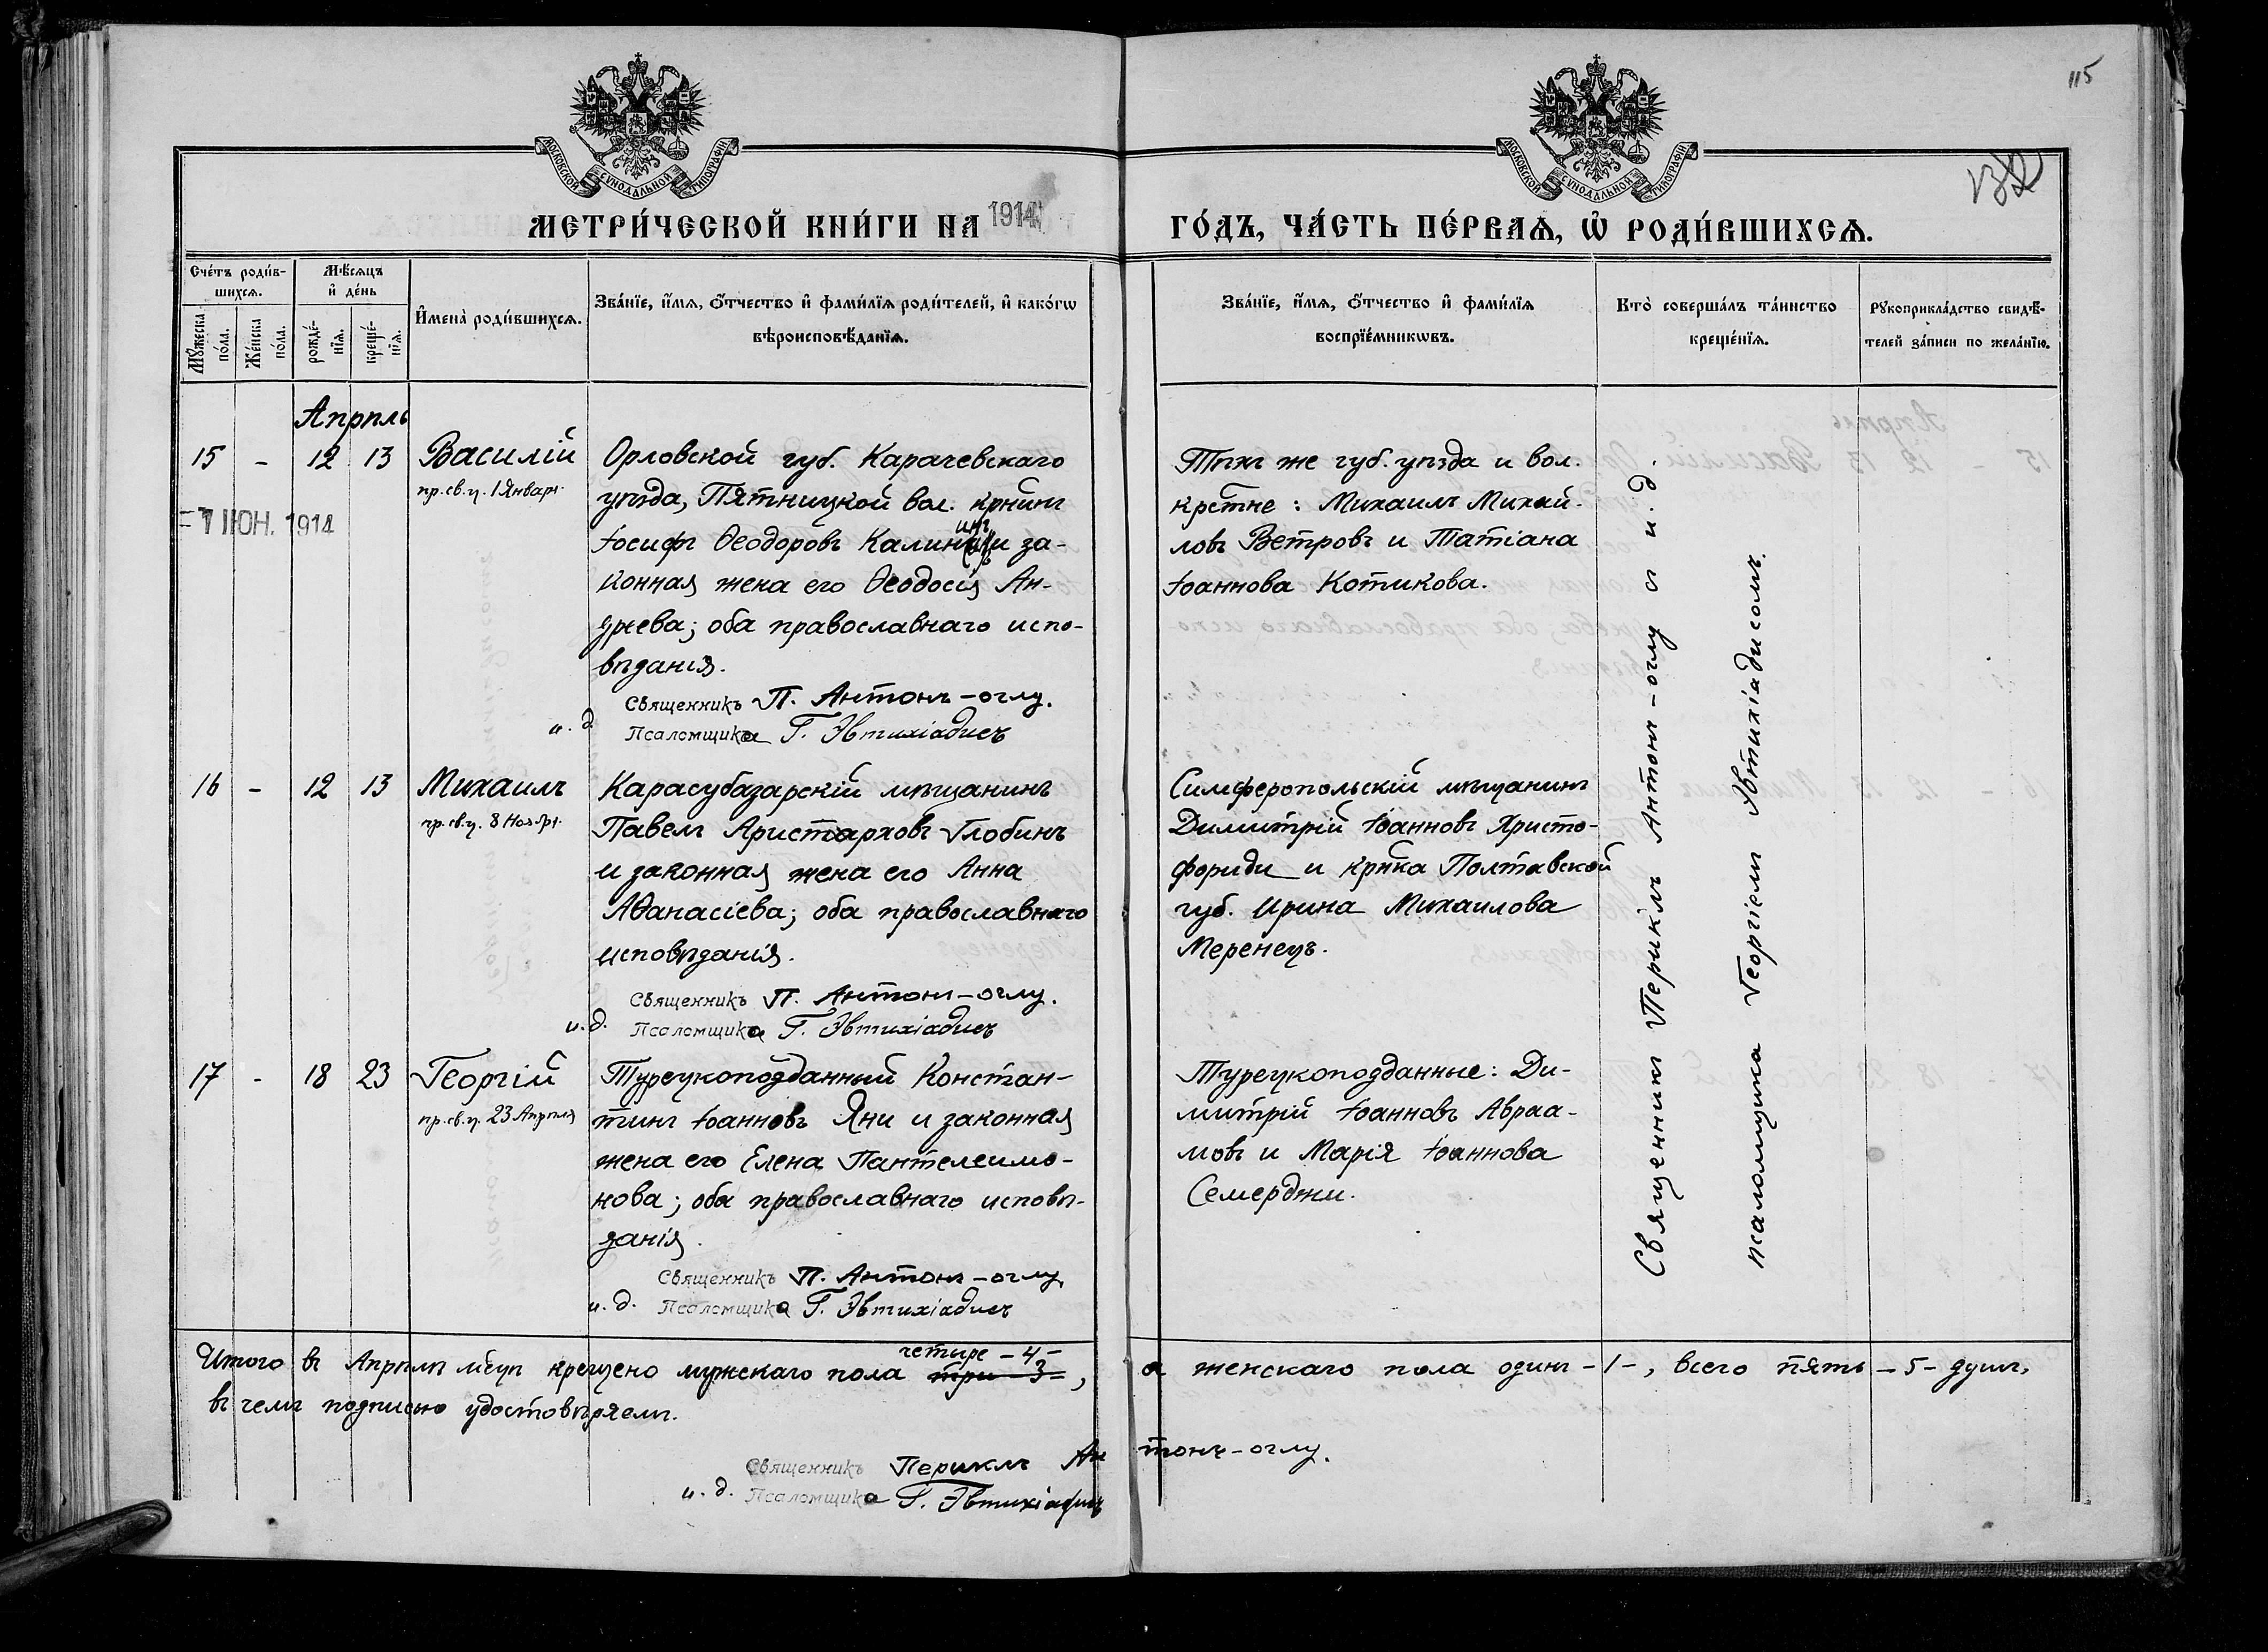 115
МОСКОВСКОЙ СѴНОДАЛЬНОЙ ТИПОГРАФІИ
МОСКОВСКОЙ СѴНОДАЛЬНОЙ ТИПОГРАФІИ
МЕТРИ́ЧЕСКОЙ КНИ́ГИ НА 1914
ГО́ДЪ, ЧА́СТЬ ПЕ́РВАѦ, Ѡ҆ РОДИ́ВШИХСѦ.
Сче́тъ роди́в-
шихсѧ.
Мꙋ́жеска по́ла.
Же́нска по́ла.
Мѣ́сѧцъ
и҆ де́нь
рожде́-нїѧ.
креще́-нїѧ.
И҆мена̀ роди́вшихсѧ.
Зва́нїе, и҆́мѧ, ѻ҆́тчество и҆ фами́лїѧ роди́телей, и҆ како́гѡ
вѣроисповѣ́данїѧ.
Зва́нїе, и҆́мѧ, ѻ҆́тчество и҆ фами́лїѧ
воспрїе́мникѡвъ.
Кто̀ соверша́лъ та́инство
креще́нїѧ.
Рꙋкоприкла́дство свидѣ́-
телей за́писи по жела́нїю.
Апрѣль
15 - 12 13 Василій
пр. св. ц. 1 Января.
= 7 ІЮН. 1914
Орловской губ. Карачевскаго
уѣзда, Пятницкой вол. кр̃нинъ
Іосифъ Ѳеодоровъ Калининъ и за-
конная жена его Ѳеодосія Ан-
дреева; оба православнаго испо-
вѣданія.
Священникъ П. Антонъ-оглу.
и. д. Псаломщика Г. Эвтихіадисъ
Тѣхъ же губ. уѣзда и вол.
кр̃стне: Михаилъ Михай-
ловъ Ветровъ и Татіана
Іоаннова Котикова.
16 - 12 13 Михаилъ
пр. св. ц. 8 Ноября.
Карасубазарскій мѣщанинъ
Павелъ Аристарховъ Глобинъ
и законная жена его Анна
Аѳанасіева; оба православнаго
исповѣданія.
Священникъ П. Антонъ-оглу.
и. д. Псаломщика Г. Эвтихіадисъ
Симферопольскій мѣщанинъ
Димитрій Іоанновъ Христо-
фориди и кр̃нка Полтавской
губ. Ирина Михаилова
Меренецъ.
17 - 18 23 Георгій
пр. св. ц. 23 Апрѣля
Турецкоподданный Констан-
тинъ Іоанновъ Яни и законная
жена его Елена Пантелеимо-
нова; оба православнаго исповѣ-
данія.
Священникъ П. Антонъ-оглу.
и. д. Псаломщика Г. Эвтихіадисъ
Турецкоподданные: Ди-
митрій Іоанновъ Авраа-
мовъ и Марія Іоаннова
Семерджи.
Священникъ Периклъ Антонъ-оглу съ и. д.
псаломщика Георгіемъ Эвтихіадисомъ.
Итого въ Апрѣлѣ мс̃цѣ крещено мужскаго пола три - 3 - четыре - 4 -, а женскаго пола одинъ - 1 -, всего пять - 5 - душъ,
въ чемъ подписью удостовѣряемъ.
Священникъ Периклъ Антонъ-оглу.
и. д. Псаломщика Г. Эвтихіадисъ